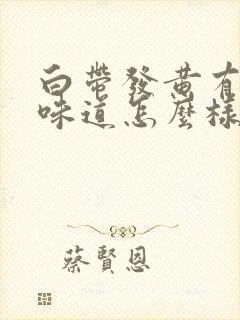 白帶發黄有
味道怎麼樣
蔡賢恩